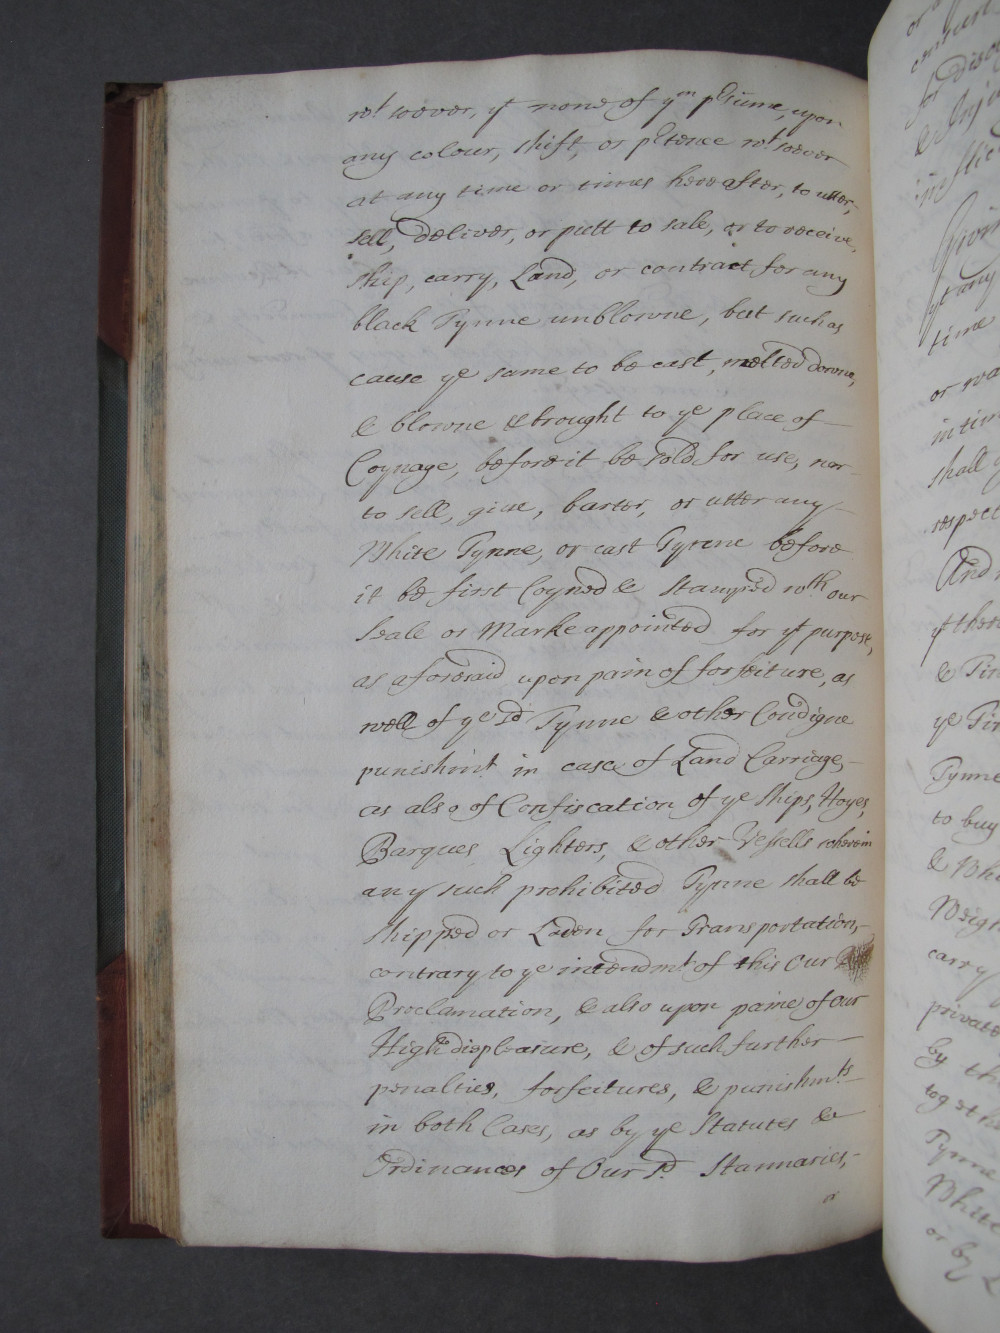 wt. soever, yt none of ym p̱sume, upon
any colour, shift, or p̱tence wt. soever
at any time or times hereafter, to utter,
sell, deliver, or putt to sale, or to receive,
ship, carry, Land, or contract for any
black Tynne unblowne, but such as
cause ye same to be cast, melted downe,
& blowne & brought to ye place of
Coynage, before it be sold for use, nor
to sell, give, barter, or utter any
White Tynne, or cast Tynne before
it be first Coyned & stamped wth our
Seale or Marke appointed for yt purpose,
as aforesaid upon pain of forfeiture, as
well of ye sd Tynne & other Condigne
punishmt in case of Land Carriage,
as also of Confiscation of ye ships, Hoyes,
Barques, Lighters, & other Vessells wherein
any such prohibited Tynne shall be
shipped or Laden for Transportation,
contrary to ye intendmt of this Our
Proclamation, & also upon paine of Our
High displeasure, & of such further
penalties, forfeitures, & punishmts
in both Cases, as by ye Statutes &
Ordinances of Our sd. Stannaries,
or
for
yt any
time
or
in
shall
respect
And
yt there
&
ye
Tynne
to buy
&
carry
private
by
Tynne
White
or by